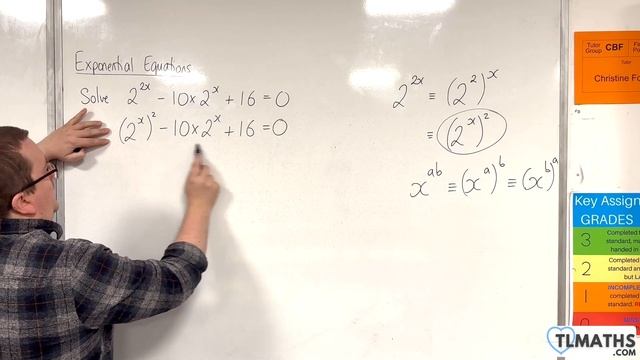 Exponential Equations
Solve 2^{2x} - 10×2^x + 16 = 0
(2^x)^2 - 10×2^x + 16 = 0
2^{2x} ≡ (2^2)^x
≡ (2^x)^2
x^{ab} ≡ (x^a)^b ≡ (x^b)^a
Tutor Group CBF
Tutor
Christine Fo
Key Assign
GRADES
3 Completed
standard, ma
handed in
2 Completed
standard an
but LA
1 INCOMPLE
completed
standard, R
TLMATHS
.COM